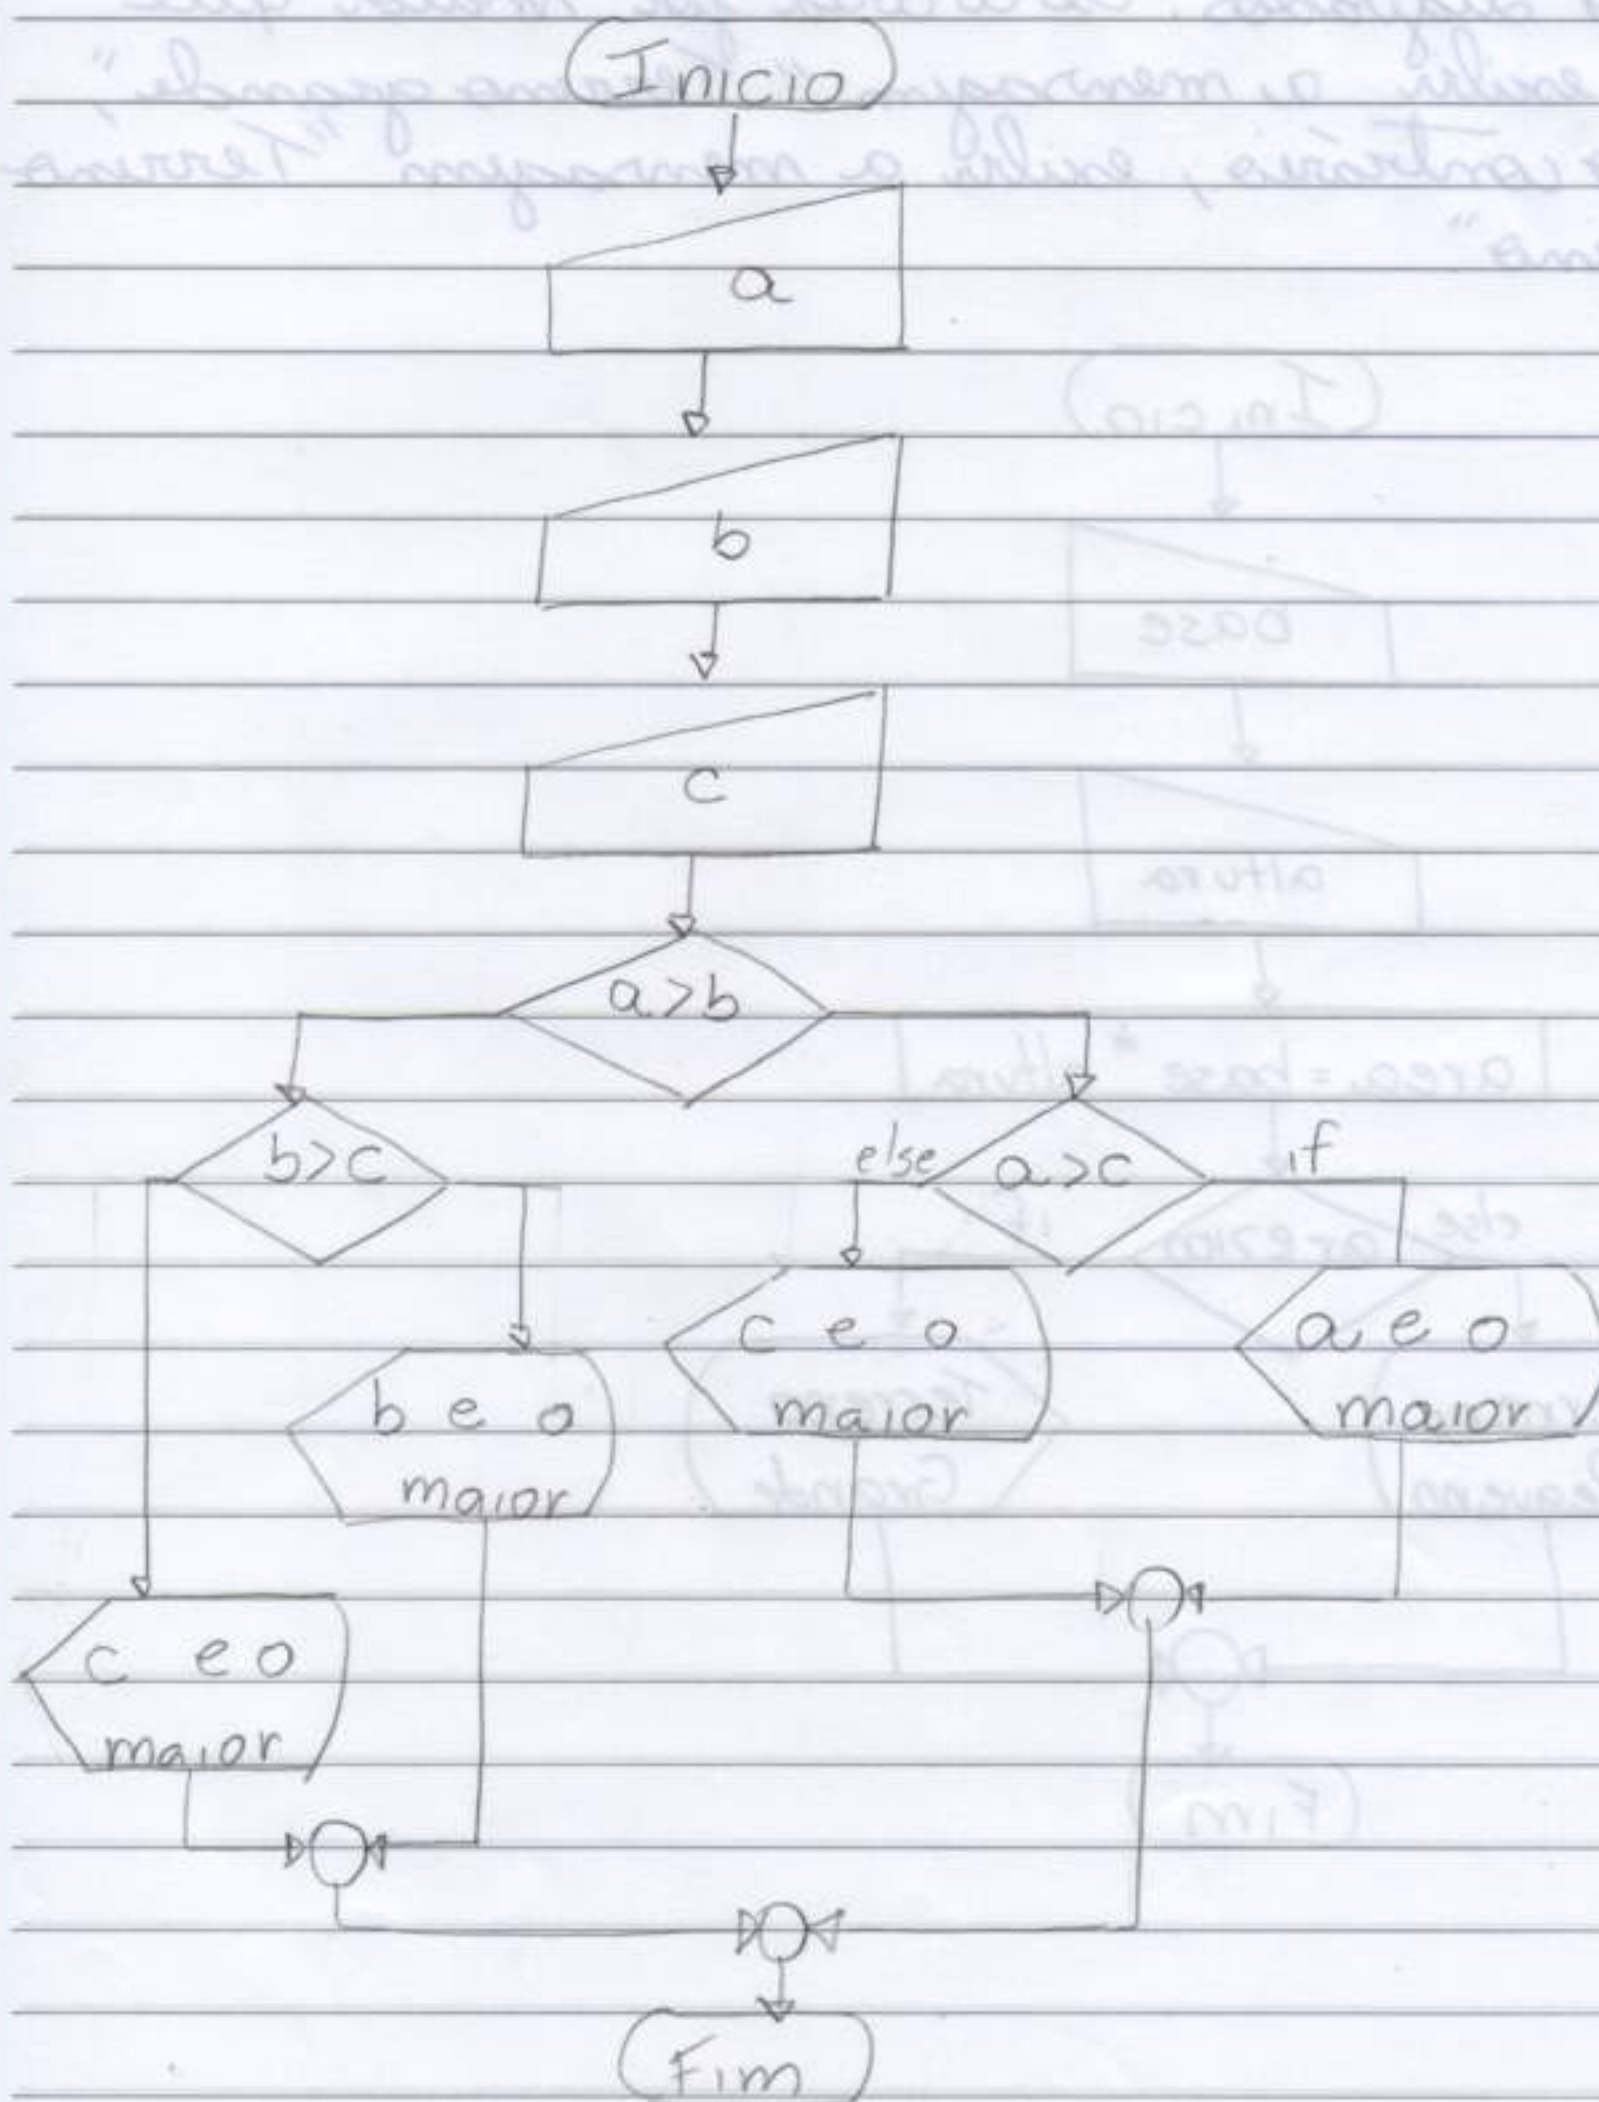 Inicio
a
b
c
a>b
b>c
else
a>c
if
c e o
maior
a e o
maior
b e o
maior
c e o
maior
Fim